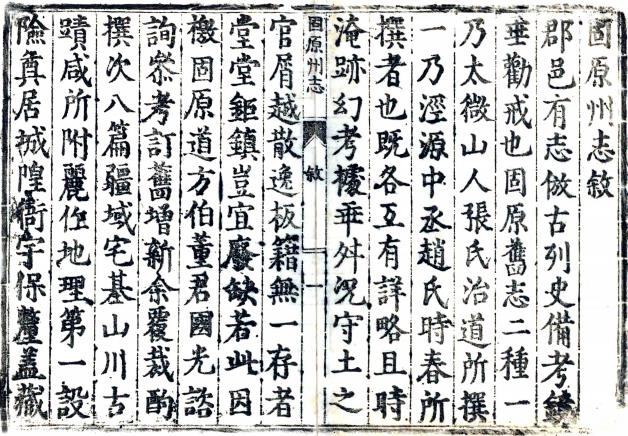 固原州志敘
郡邑有志倣古列史備考鏡
垂勸戒也固原舊志二種一
乃太微山人張氏治道所撰
一乃涇源中丞趙氏時春所
撰者也既各互有詳略且時
淹跡幻考㯫乖舛況守土之
固原州志
敘
一
官屑越散逸板籍無一存者
堂堂鉅鎮豈宜廢缺若此因
檄固原道方伯董君國光諮
詢參考訂舊增新余覆裁酌
撰次八篇疆域宅基山川古
蹟咸所附麗作地理第一設
險奠居城隍衙宇保釐蓋藏